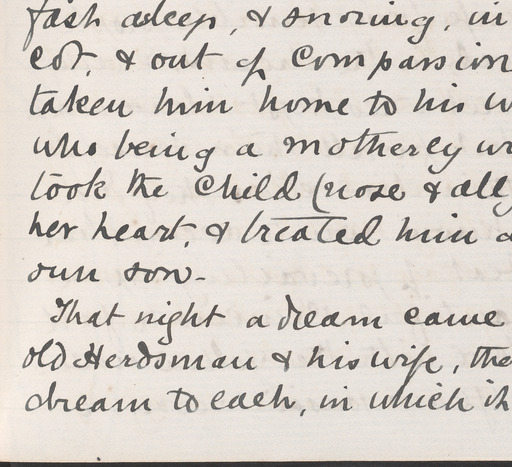 fast asleep, & snoring, in
cot, & out of compassion
taken him home to his
who being a motherly
took the child (nose & all
her heart, & treated him
own son-
That night a dream came
old Herdsman & his wife, the
dream to each, in which